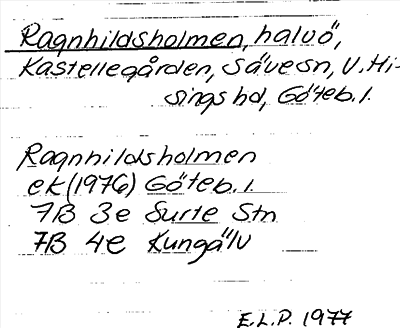 Ragnhildsholmen, halvö,
Kastellegården, Sävesn, V. Hi-
sings hd, Göteb. l.
Ragnhildsholmen
ek (1976) Göteb. l.
7B 3e Surte Stn
7B 4e Kungälv
E.L.P. 1977